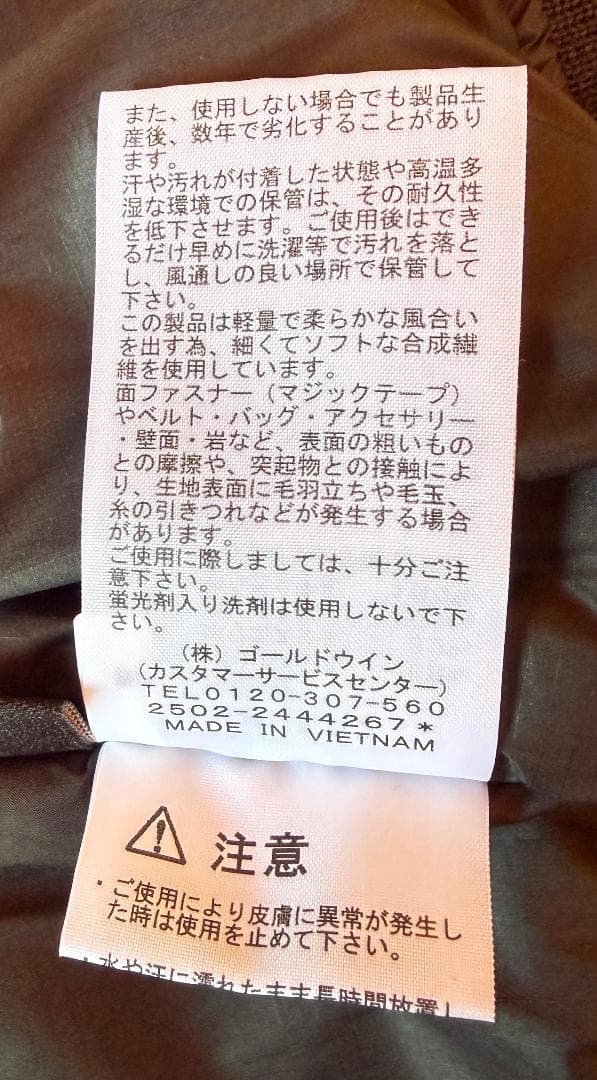 また、使用しない場合でも製品生
産後、数年で劣化することがあり
ます。
汗や汚れが付着した状態や高温多
湿な環境での保管は、その耐久性
を低下させます。ご使用後はでき
るだけ早めに洗濯等で汚れを落と
し、風通しの良い場所で保管して
下さい。
この製品は軽量で柔らかな風合い
を出す為、細くてソフトな合成繊
維を使用しています。
面ファスナー（マジックテープ）
やベルト・バッグ・アクセサリー
・壁面・岩など、表面の粗いもの
との摩擦や、突起物との接触によ
り、生地表面に毛羽立ちや毛玉、
糸の引きつれなどが発生する場合
があります。
ご使用に際しましては、十分ご注
意下さい。
蛍光剤入り洗剤は使用しないで下
さい。
（株）ゴールドウイン
(カスタマーサービスセンター)
TEL0120-307-560
2502-2444267*
MADE IN VIETNAM
注意
・ご使用により皮膚に異常が発生し
た時は使用を止めて下さい。
・水や汗に濡れたまま長時間放置し